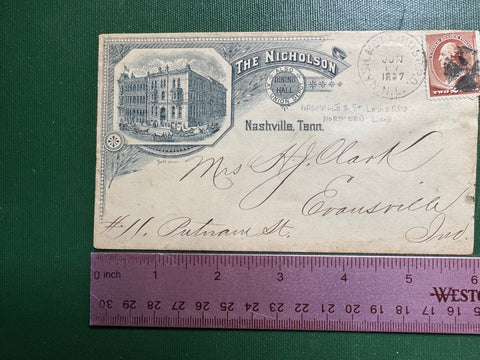 THE NICHOLSON
ALSO
DINING HALL
UNION DEPOT
Nashville, Tenn.
NASHVILLE & ST. LOUIS RPO
NORTHERN LINE
JUN
1887
N.L.
TWO
Mrs H. J. Clark
#11. Putnam St.
Evansville
Ind.
0 inch 1 2 3 4 5 6
30 29 28 27 26 25 24 23 22 21 20 19 18 17 16 15
WESTCO